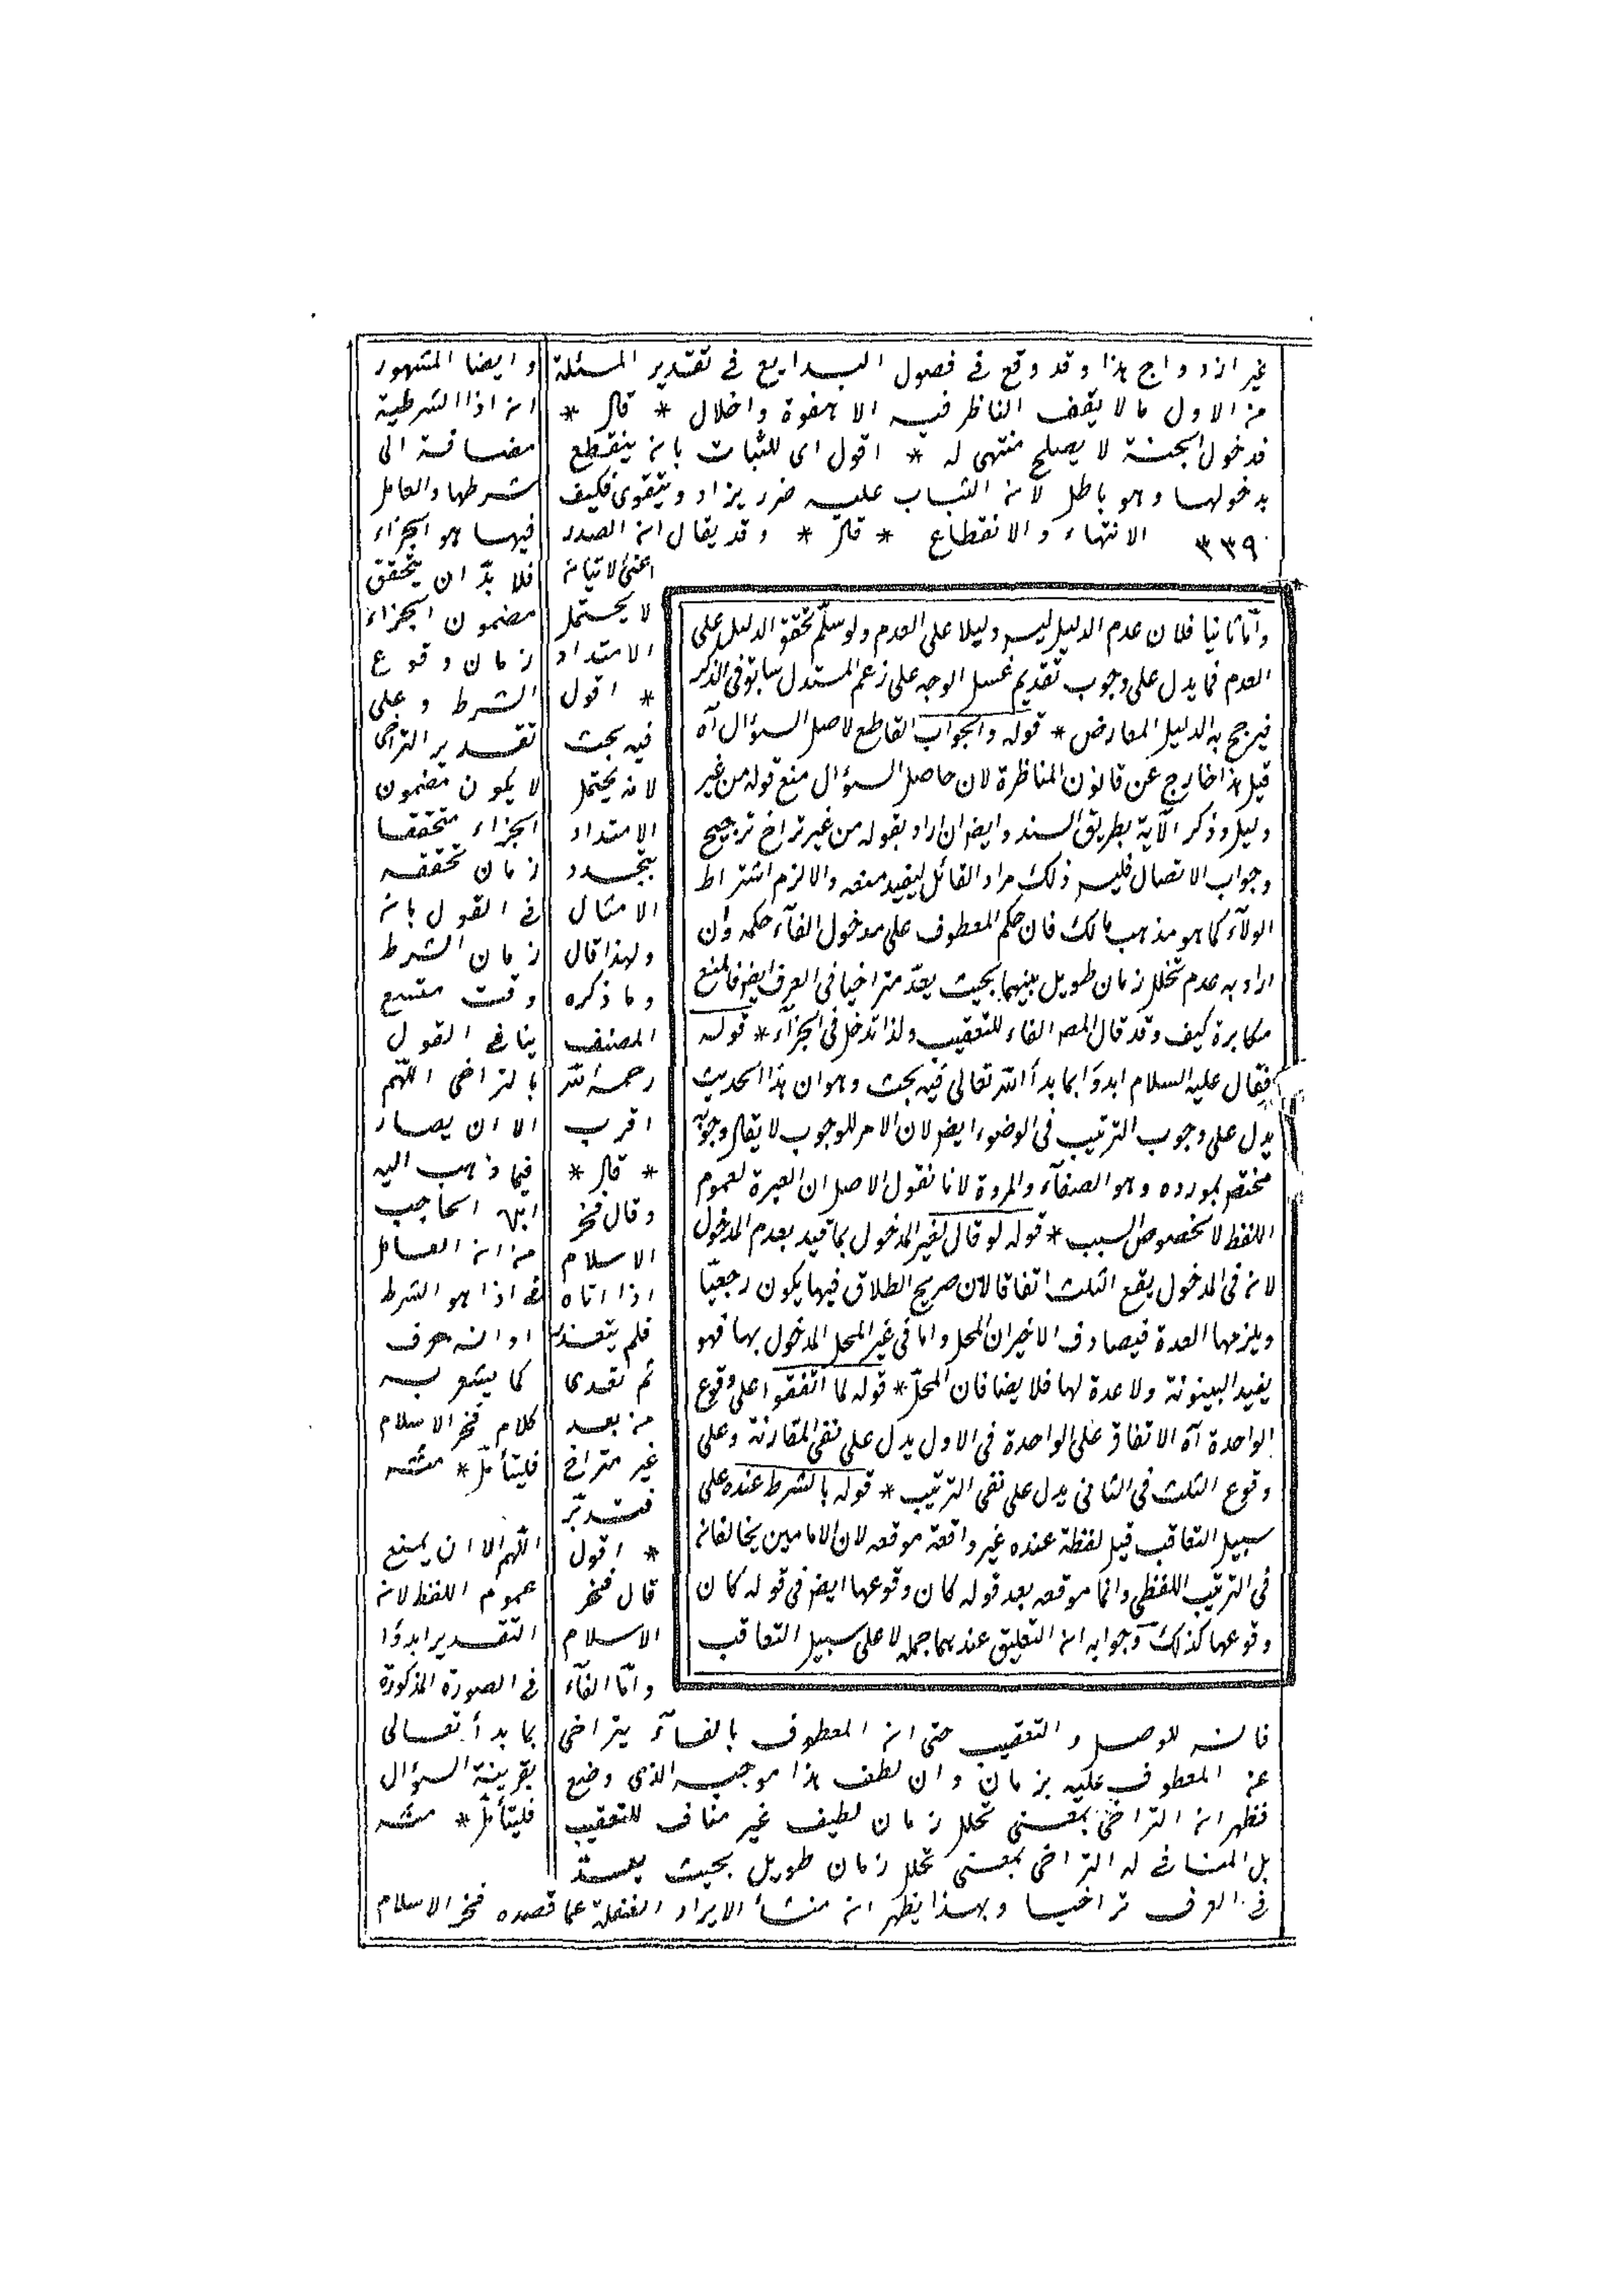 غير ازدواج هذا وقد وقع فى فصول البدايع فى تقدير المسئلة
من الاول ما لا يقف الناظر فيه الا هفوة واخلال * قال *
فدخول الجنة لا يصلح منتهى له * اقول اى للثبات بانه ينقطع
بدخولها وهو باطل لانه الثبات عليه يزاد ويتقوى فكيف
الانتهاء والانقطاع * قال * وقد يقال انه الصدر
٣٣٩
اعنى لا تيانه
لا يحتمل
الامتداد
* اقول
فيه بحث
لانه يحتمل
الامتداد
بتجدد
الامثال
ولهذا قال
وما ذكره
المصنف
رحمه الله
اقرب
* قال *
وقال فخر
الاسلام
اذا اتاه
فلم يتغد
ثم تغدى
من بعد
غير متراخ
فتدبّر
* اقول
قال فخر
الاسلام
وامّا الفآء
فانه للوصل والتعقيب حتى انه المعطوف بالفآء يتراخى
عن المعطوف عليه بزمان وان لطف هذا موجبه الذى وضع
فظهر انه التراخى بمعنى تخلل زمان لطيف غير مناف للتعقيب
بل المنافى له التراخى بمعنى تخلل زمان طويل بحيث يعدّ
فى العرف تراخيا وبهذا يظهر انه منشأ الايراد الغفلة عما قصده فخر الاسلام
وأمّا ثانيا فلان عدم الدليل ليس دليلا على العدم ولو سلّم تحقق الدليل على
العدم فما يدل على وجوب تقديم غسل الوجه على زعم المستدل سابق فى الذكر
فيرجح به الدليل المعارض * قوله والجواب القاطع لاصل السؤال آه
قيل هذا خارج عن قانون المناظرة لان حاصل السؤال منع قوله من غير
دليل وذكر الآية بطريق السند وايضا ان اراد بقوله من غير تراخ ترجيح
وجواب الاتصال فليس ذلك مراد القائل ليفيد منعه والا لزم اشتراط
الولآء كما هو مذهب مالك فان حكم المعطوف على مدخول الفآء حكمه وان
اراد به عدم تخلل زمان طويل بينهما بحيث يعدّ متراخيا فى العرف ايضا فالمنع
مكابرة كيف وقد قال المصـ الفاء للتعقيب ولذا تدخل فى الجزآء * قوله
فقال عليه السلام ابدؤا بما بدأ الله تعالى فيه بحث وهو ان هذا الحديث
يدل على وجوب الترتيب فى الوضوء ايضا لان الامر للوجوب لا يقال وجوبه
مختص بمورده وهو الصفآء والمروة لانا نقول الاصل ان العبرة لعموم
اللفظ لا لخصوص السبب * قوله لو قال لغير المدخول بما قيد بعدم المدخول
لانه فى المدخول يقع الثلث اتفاقا لان صريح الطلاق فيها يكون رجعيّا
ويلزمها العدة فيصادف الاخيران المحل واما فى غير المحل المدخول بها فهو
يفيد البينونة ولا عدة لها فلا يصادفان المحلّ * قوله لما اتفقوا على وقوع
الواحدة آه الاتفاق على الواحدة فى الاول يدل على نفى المقارنة وعلى
وقوع الثلث فى الثانى يدل على نفى الترتيب * قوله بالشرط عنده على
سبيل التعاقب قيل لفظة عنده غير واقعة موقعه لان الامامين يخالفانه
فى الترتيب اللفظى وانّما موقعه بعد قوله كان وقوعها ايضا فى قوله كان
وقوعها كذلك وجوابه انه التعليق عندهما جملة لا على سبيل التعاقب
وايضا المشهور
انه اذا الشرطية
مضافة الى
شرطها والعامل
فيها هو الجزاء
فلا بدّ ان يتحقق
مضمون الجزاء
زمان وقوع
الشرط وعلى
تقدير التراخى
لا يكون مضمون
الجزاء متحققا
زمان تحققه
فى القول بانه
زمان الشرط
وقت متسع
ينافى القول
بالتراخى اللهم
الا ان يصار
فيما ذهب اليه
ابن الحاجب
من انه العامل
فى اذا هو الشرط
او انه حرف
كما يشعر به
كلام فخر الاسلام
فليتأمّل * منه
اللهم الا ان يمنع
عموم اللفظ لانه
التقدير ابدؤا
فى الصورة المذكورة
بما بدأ تعالى
بقرينة السؤال
فليتأمّل * منه